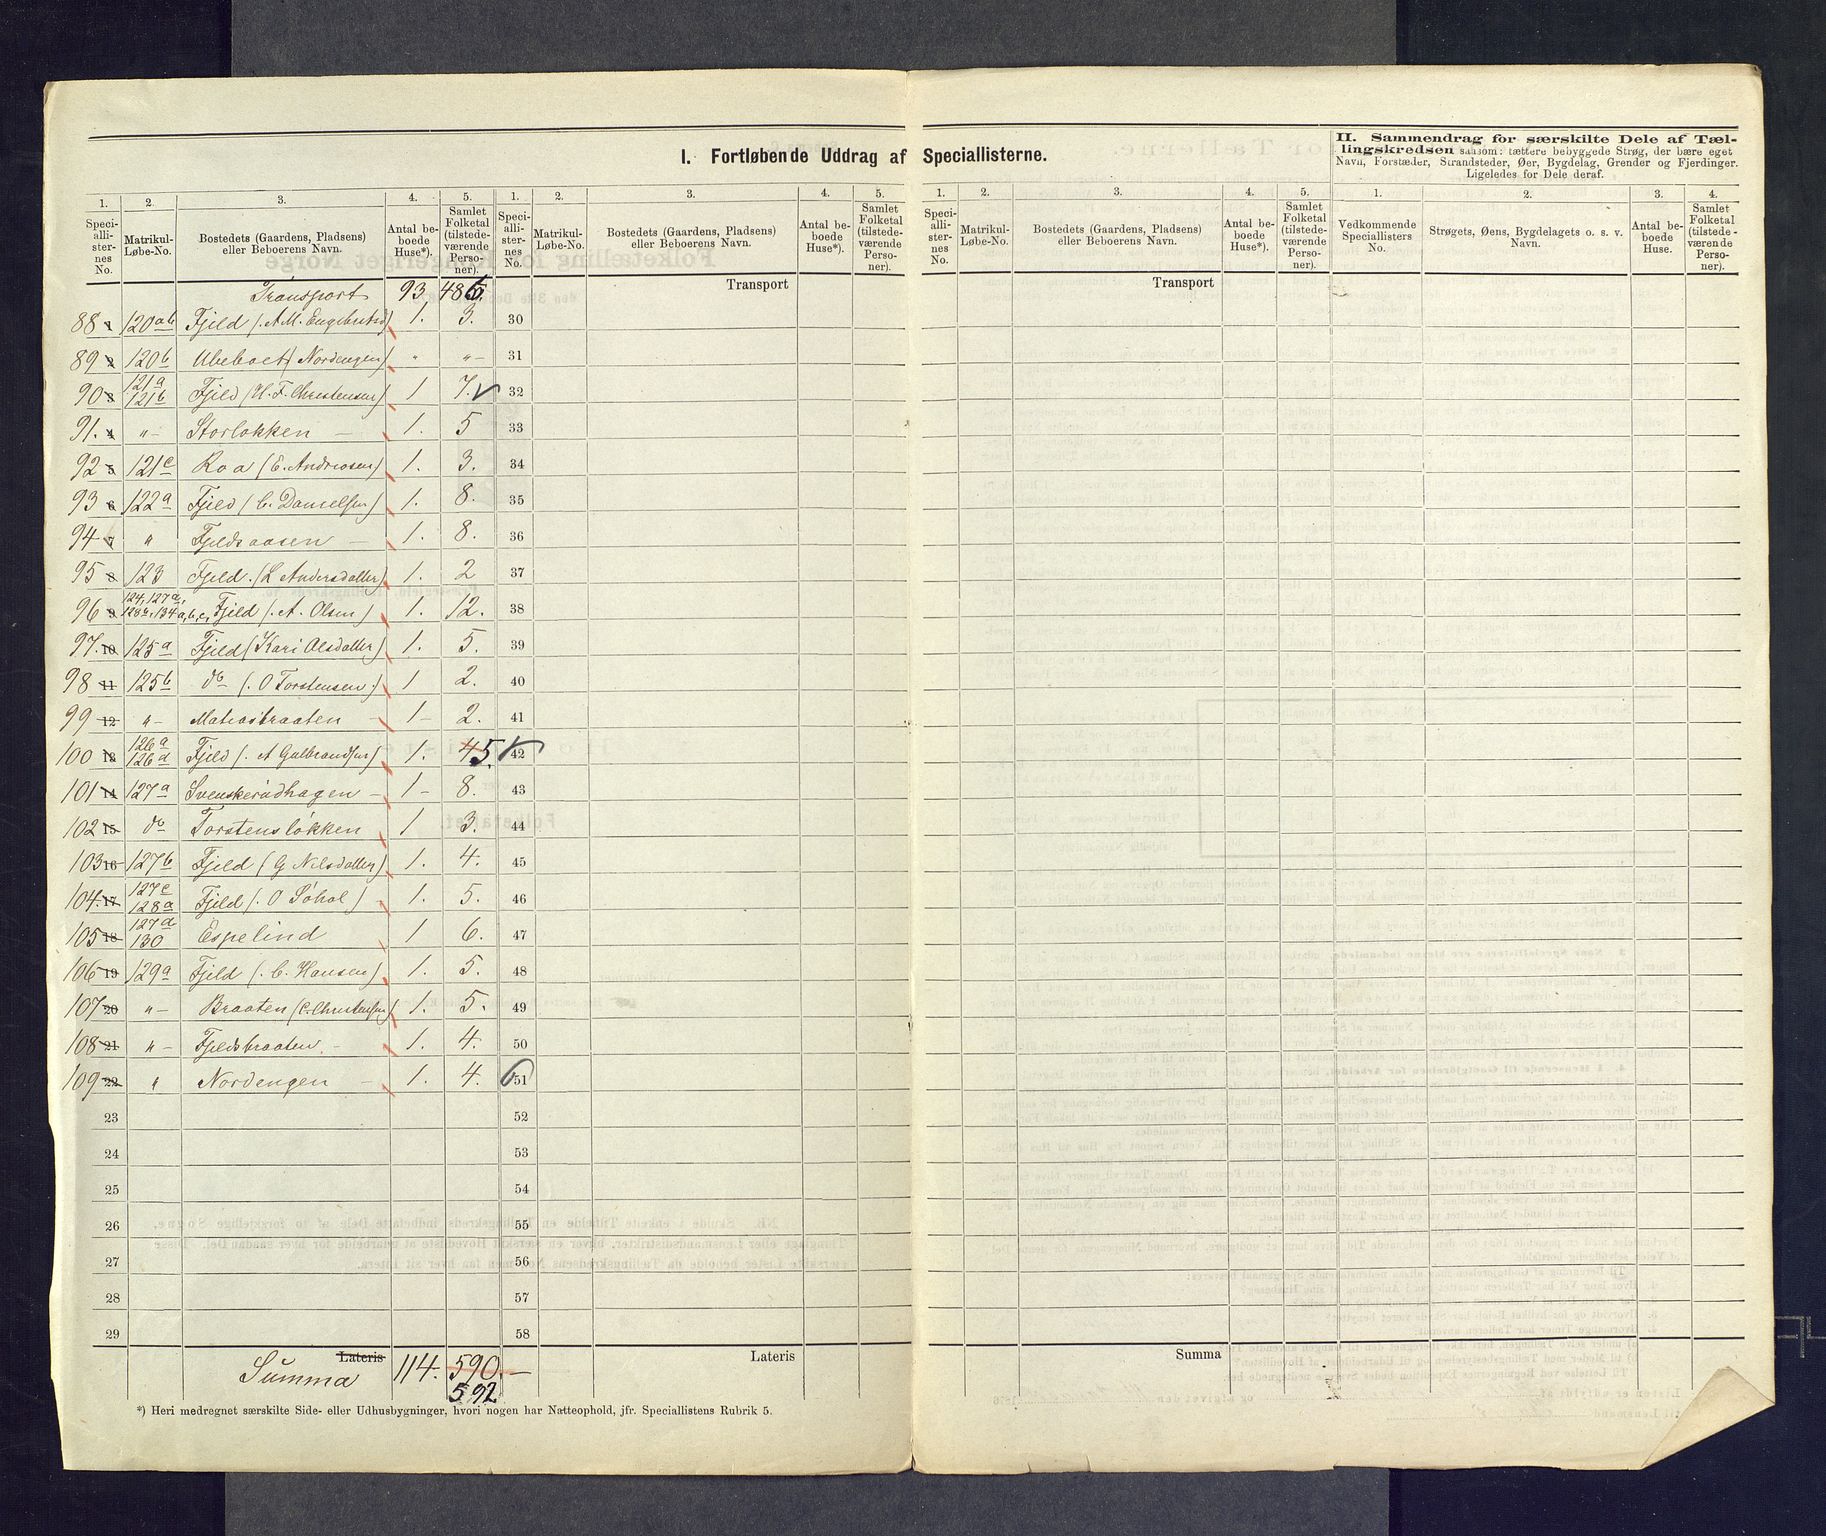 I. Fortløbende Uddrag af Speciallisterne.
II. Sammendrag for særskilte Dele af Tæl-
lingskredsen saasom: tættere bebyggede Strøg, der bære eget
Navn, Forstæder, Strandsteder, Øer, Bygdelag, Grender og Fjerdinger.
Ligeledes for Dele deraf.
1. 2. 3. 4. 5. 1. 2. 3. 4. 5. 1. 2. 3. 4. 5. 1. 2. 3. 4.
Speciallisternes No. Matrikul-Løbe-No. Bostedets (Gaardens, Pladsens) eller Beboerens Navn. Antal beboede Huse*). Samlet Folketal (tilstedeværende Personer).
Speciallisternes No. Matrikul-Løbe-No. Bostedets (Gaardens, Pladsens) eller Beboerens Navn. Antal beboede Huse*). Samlet Folketal (tilstedeværende Personer).
Speciallisternes No. Matrikul-Løbe-No. Bostedets (Gaardens, Pladsens) eller Beboerens Navn. Antal beboede Huse*). Samlet Folketal (tilstedeværende Personer).
Vedkommende Speciallisters No. Strøgets, Øens, Bygdelagets o. s. v. Navn. Antal beboede Huse. Samlet Folketal (tilstedeværende Personer).
Transport 93 486 Transport Transport
88 1 120ab Fjeld (A M. Engebretsd) 1. 3. 30
89 2 120b Ubeboet (Nordengen) " "- 31
90 3 121a 121b Fjeld (H. F. Christensen) 1 7. 32
91. 4 "- Storløkken - 1. 5 33
92 5 121c Roa (E. Andresen) 1. 3. 34
93 6 122a Fjeld (C. Danielsen) 1. 8. 35
94 7 " Fjeldsaasen - 1. 8. 36
95 8 123 Fjeld. (L Andersdatter) 1. 2 37
96 9 124, 127a, 128a, 134a, b, c, Fjeld (. A. Olsen) 1. 12. 38
97. 10 125a Fjeld (Kari Olsdatter) 1. 5. 39
98 11 125b do (. O Torstensen.) 1 2. 40
99 12 "- Matiasbraaten - 1- 2. 41
100 13 126a 126d Fjeld (. A Gulbrandsen) 1. 4 5. 42
101 14 127a Svenskerudhagen - 1- 8. 43
102 15 do Torstensløkken 1 3. 44
103 16 127b Fjeld (G Nilsdatter) 1. 4. 45
104. 17 127c 128a Fjeld (. O Søhol) 1. 5. 46
105 18 127d 130 Espelind 1 6. 47
106 19 129a Fjeld (. C. Hansen) 1. 5. 48
107 20 "- Braaten (C. Christensen) 1. 5. 49
108 21 "- Fjeldsbraaten - 1. 4. 50
109 22 " Nordengen - 1. 4. 51
23 52
24 53
25 54
26 55
27 56
28 57
29 58
Lateris Summa 114. 590. Lateris Summa
592
*) Heri medregnet særskilte Side- eller Udhusbygninger, hvori nogen har Natteophold, jfr. Speciallistens Rubrik 5.